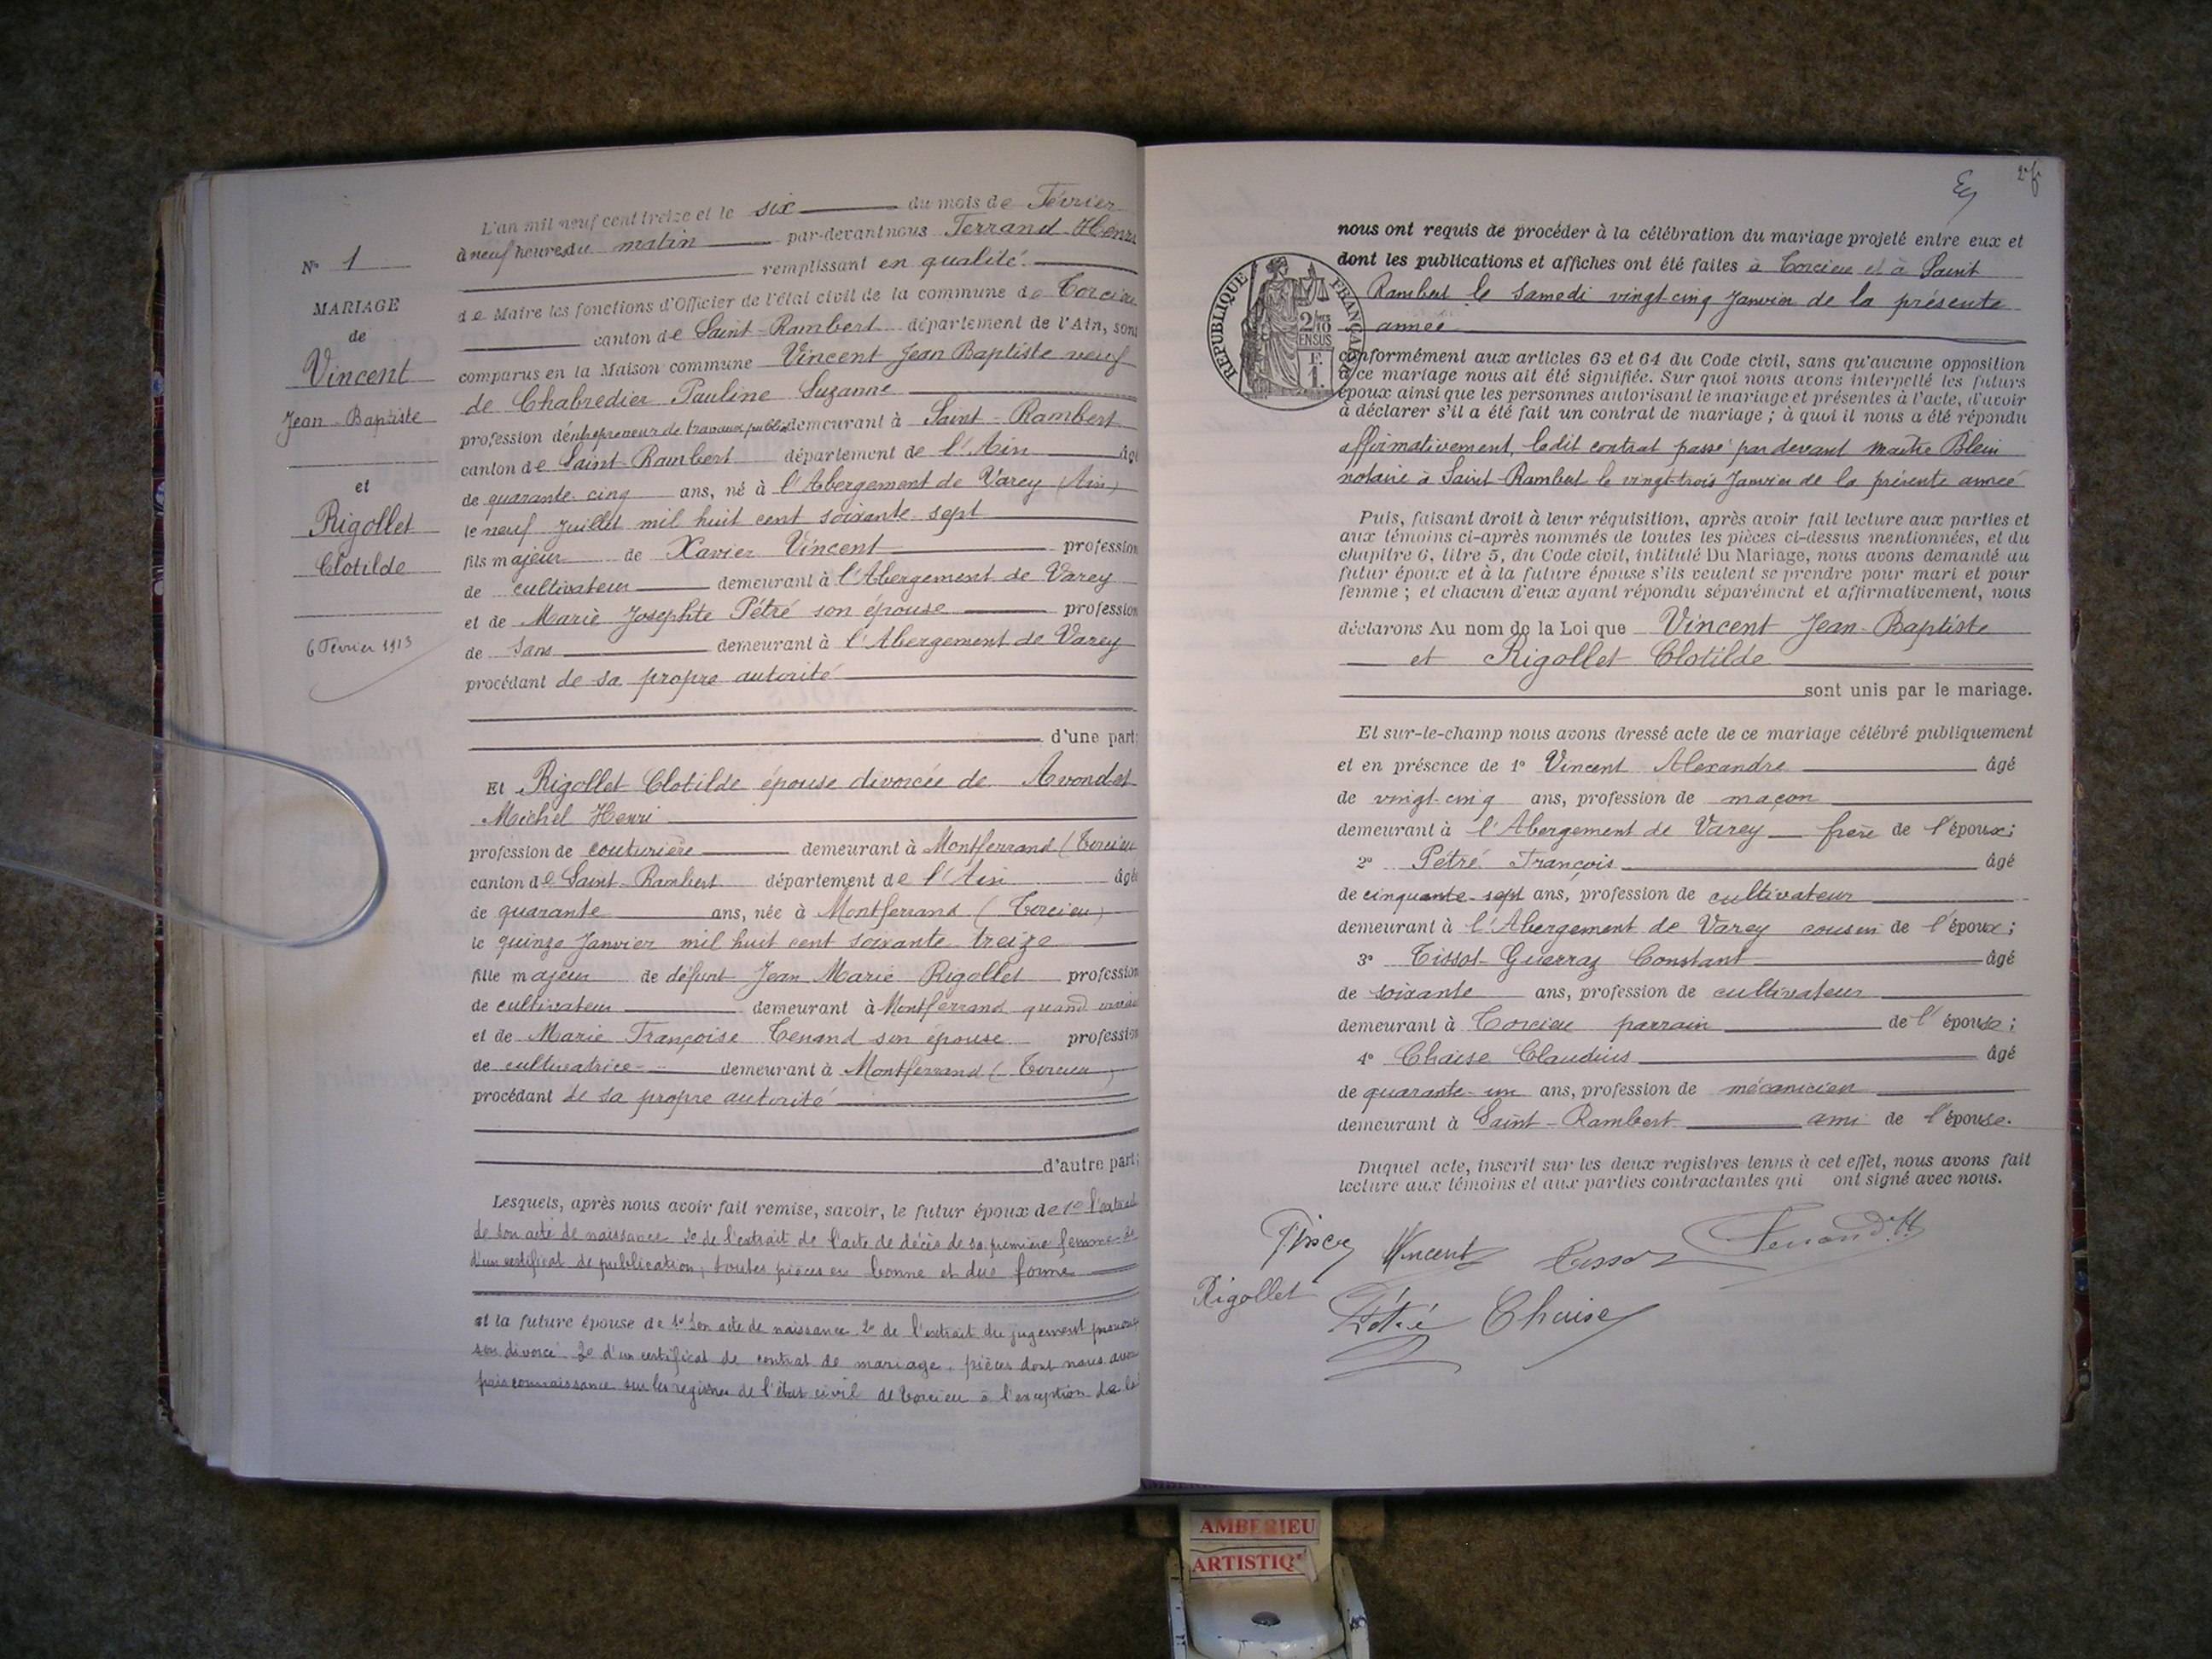 N° 1
MARIAGE
de
Vincent
Jean-Baptiste
et
Rigollet
Clotilde
6 Février 1913
L'an mil neuf cent treize et le six du mois de Février
à neuf heures du matin par-devant nous Ferrand Henri
remplissant en qualité
de Maire les fonctions d'Officier de l'état civil de la commune de Torcieu
canton de Saint-Rambert département de l'Ain, sont
comparus en la Maison commune Vincent Jean Baptiste veuf
de Chabredier Pauline Suzanne
profession d'entrepreneur de travaux publics demeurant à Saint-Rambert
canton de Saint-Rambert département de l'Ain âgé
de quarante-cinq ans, né à l'Abergement de Varey (Ain)
le neuf Juillet mil huit cent soixante-sept
fils majeur de Xavier Vincent profession
de cultivateur demeurant à l'Abergement de Varey
et de Marie Josephte Pétré son épouse profession
de Sans demeurant à l'Abergement de Varey
procédant de sa propre autorité
d'une part;
Et Rigollet Clotilde épouse divorcée de Avondet
Michel Henri
profession de couturière demeurant à Montferrand (Torcieu
canton de Saint-Rambert département de l'Ain âgée
de quarante ans, née à Montferrand (Torcieu)
le quinze Janvier mil huit cent soixante treize
fille majeur de défunt Jean Marie Rigollet profession
de cultivateur demeurant à Montferrand quand vivait
et de Marie Françoise Tenand son épouse profession
de cultivatrice demeurant à Montferrand (Torcieu)
procédant de sa propre autorité
d'autre part;
Lesquels, après nous avoir fait remise, savoir, le futur époux de 1° l'extrait
de son acte de naissance 2° de l'extrait de l'acte de décès de sa première femme 3°
d'un certificat de publication, toutes pièces en bonne et due forme
et la future épouse de 1° son acte de naissance 2° de l'extrait du jugement prononçant
son divorce 3° d'un certificat de contrat de mariage, pièces dont nous avons
pris connaissance sur les registres de l'état civil de Torcieu à l'exception de la
2 f
RÉPUBLIQUE FRANÇAISE
2/10
EN SUS
F.
1.
nous ont requis de procéder à la célébration du mariage projeté entre eux et
dont les publications et affiches ont été faites à Torcieu et à Saint
Rambert le Samedi vingt-cinq Janvier de la présente
année
conformément aux articles 63 et 64 du Code civil, sans qu'aucune opposition
à ce mariage nous ait été signifiée. Sur quoi nous avons interpellé les futurs
époux ainsi que les personnes autorisant le mariage et présentes à l'acte, d'avoir
à déclarer s'il a été fait un contrat de mariage ; à quoi il nous a été répondu
affirmativement, ledit contrat passé par devant maître Blein
notaire à Saint-Rambert le vingt-trois Janvier de la présente année
Puis, faisant droit à leur réquisition, après avoir fait lecture aux parties et
aux témoins ci-après nommés de toutes les pièces ci-dessus mentionnées, et du
chapitre 6, titre 5, du Code civil, intitulé Du Mariage, nous avons demandé au
futur époux et à la future épouse s'ils veulent se prendre pour mari et pour
femme ; et chacun d'eux ayant répondu séparément et affirmativement, nous
déclarons Au nom de la Loi que Vincent Jean-Baptiste
et Rigollet Clotilde
sont unis par le mariage.
Et sur-le-champ nous avons dressé acte de ce mariage célébré publiquement
et en présence de 1° Vincent Alexandre âgé
de vingt-cinq ans, profession de maçon
demeurant à l'Abergement de Varey frère de l'époux;
2° Pétré François âgé
de cinquante-sept ans, profession de cultivateur
demeurant à l'Abergement de Varey cousin de l'époux;
3° Tissot-Guerraz Constant âgé
de soixante ans, profession de cultivateur
demeurant à Torcieu parrain de l'épouse;
4° Chaise Claudius âgé
de quarante-un ans, profession de mécanicien
demeurant à Saint-Rambert ami de l'épouse.
Duquel acte, inscrit sur les deux registres tenus à cet effet, nous avons fait
lecture aux témoins et aux parties contractantes qui ont signé avec nous.
Vincent Tissot Ferrand H
Rigollet Pétré Chaise
AMBERIEU
ARTISTIQ